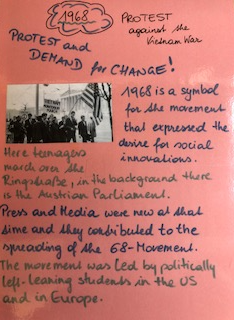 1968
PROTEST
against the
Vietnam War
PROTEST and
DEMAND for CHANGE!
1968 is a symbol
for the movement
that expressed the
desire for social
innovations.
Here teenagers
march over the
Ringstraße, in the background there
is the Austrian Parliament.
Press and Media were new at that
time and they contributed to the
spreading of the 68-Movement.
The movement was led by politically
left-leaning students in the US
and in Europe.